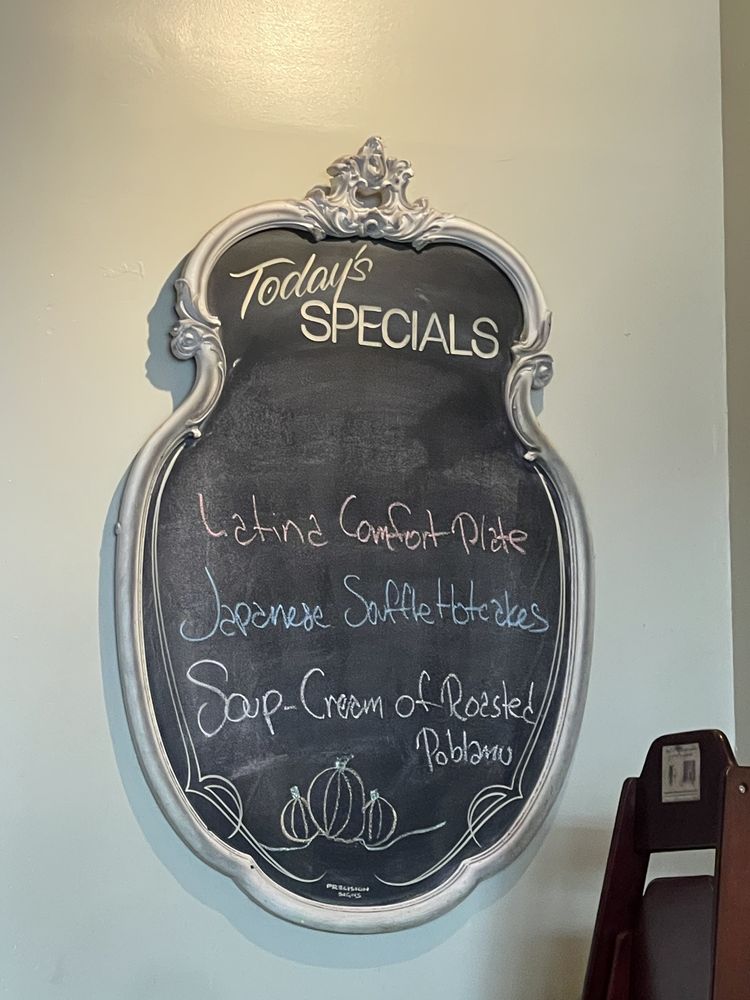 Today's
SPECIALS
Latina Comfort Plate
Japanese Souffle Hotcakes
Soup-Cream of Roasted
Poblano
PRECISION
SIGNS